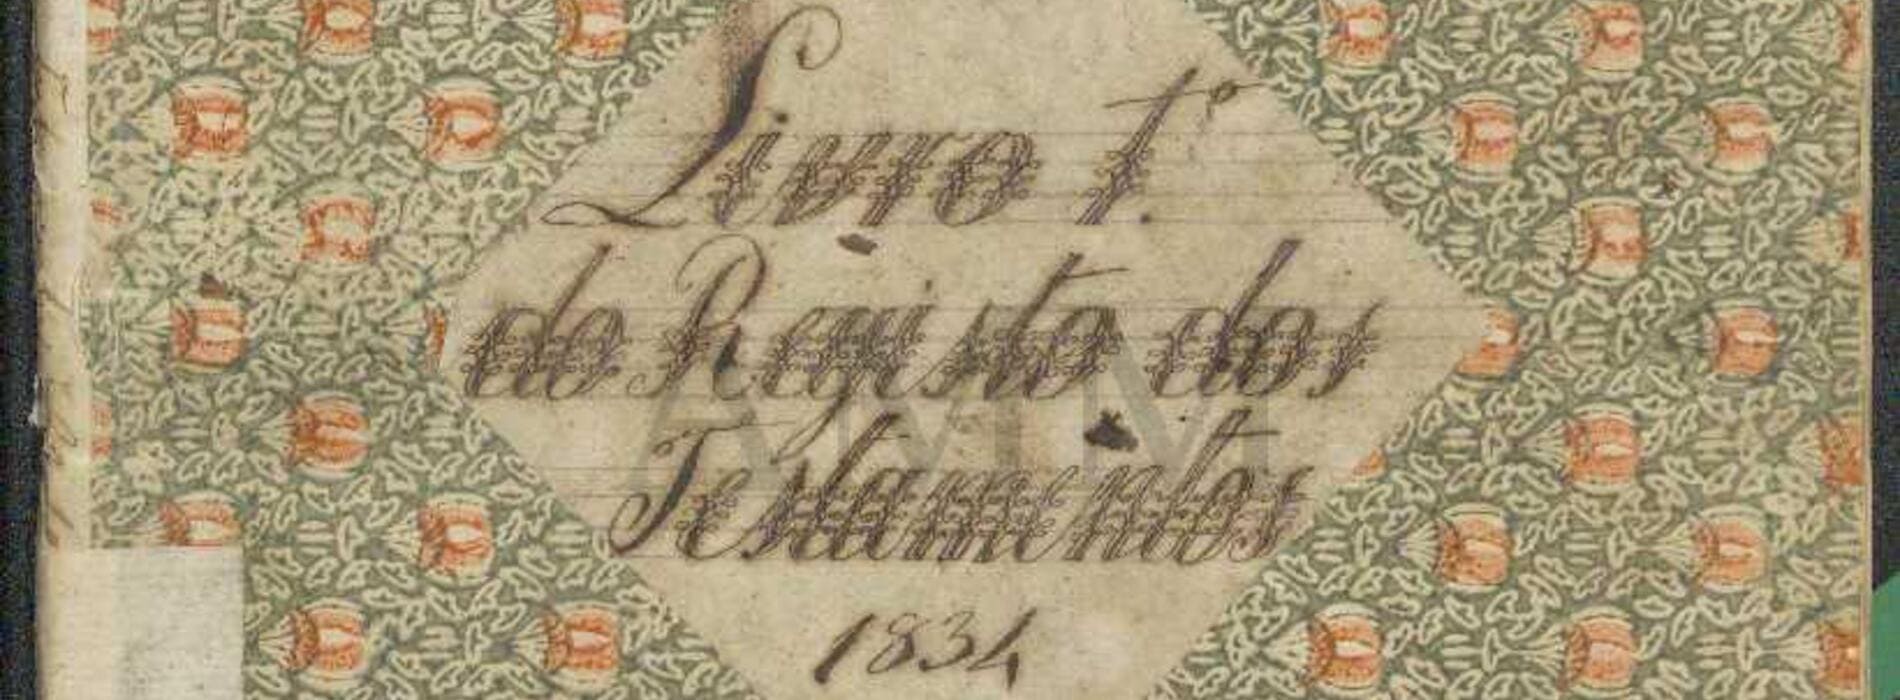 Livro 1.º
do Registo dos
Testamentos
1834
AMM